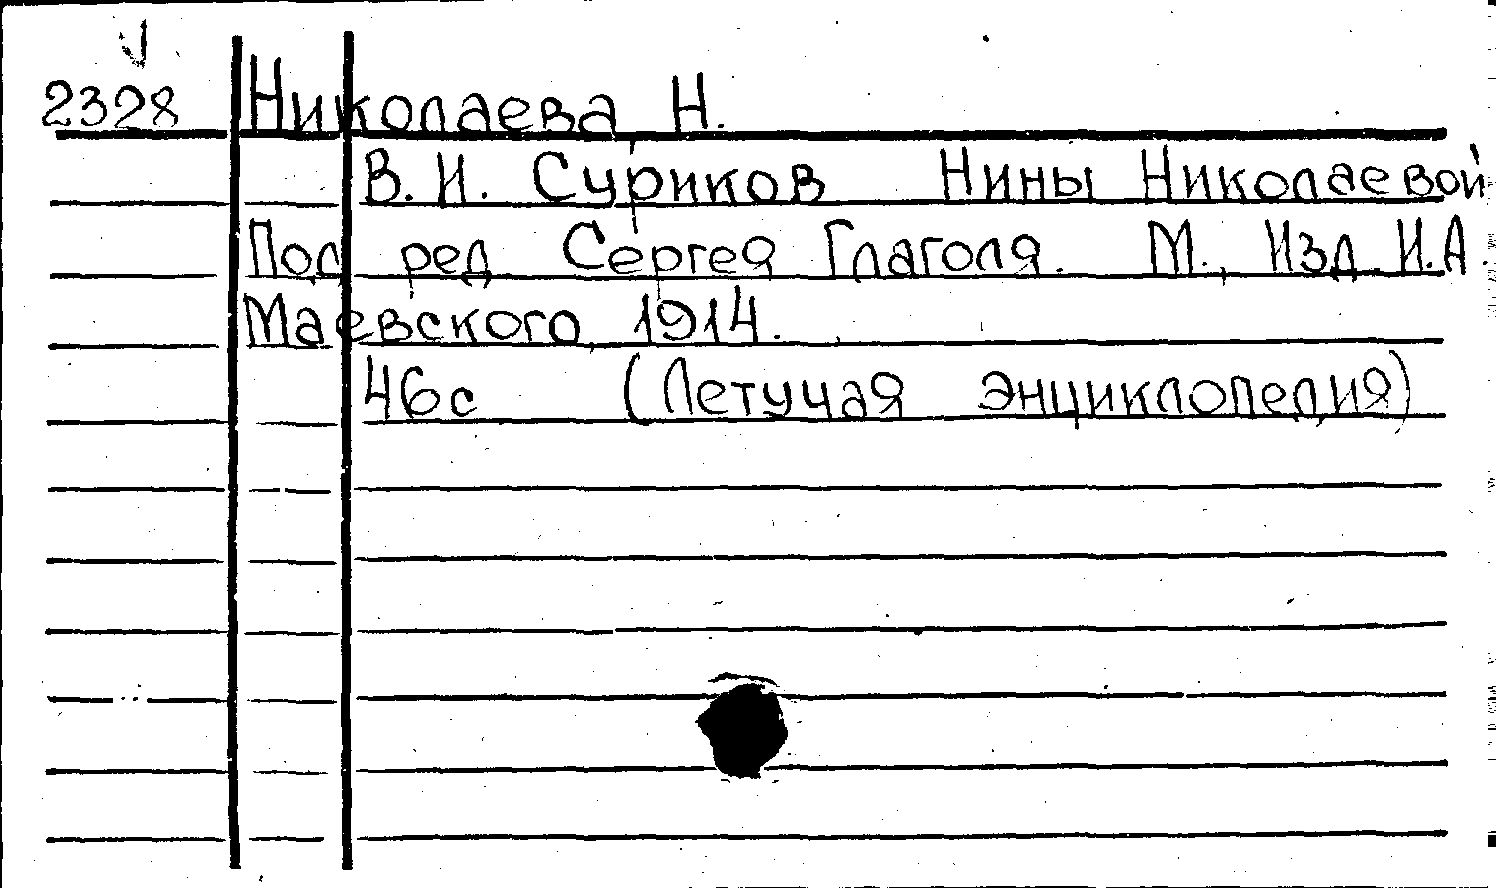 2328 Николаева Н.
В. И. Суриков Нины Николаевой
Под ред Сергея Глаголя. М., Изд. И.А.
Маевского, 1914.
46с (Летучая энциклопедия)